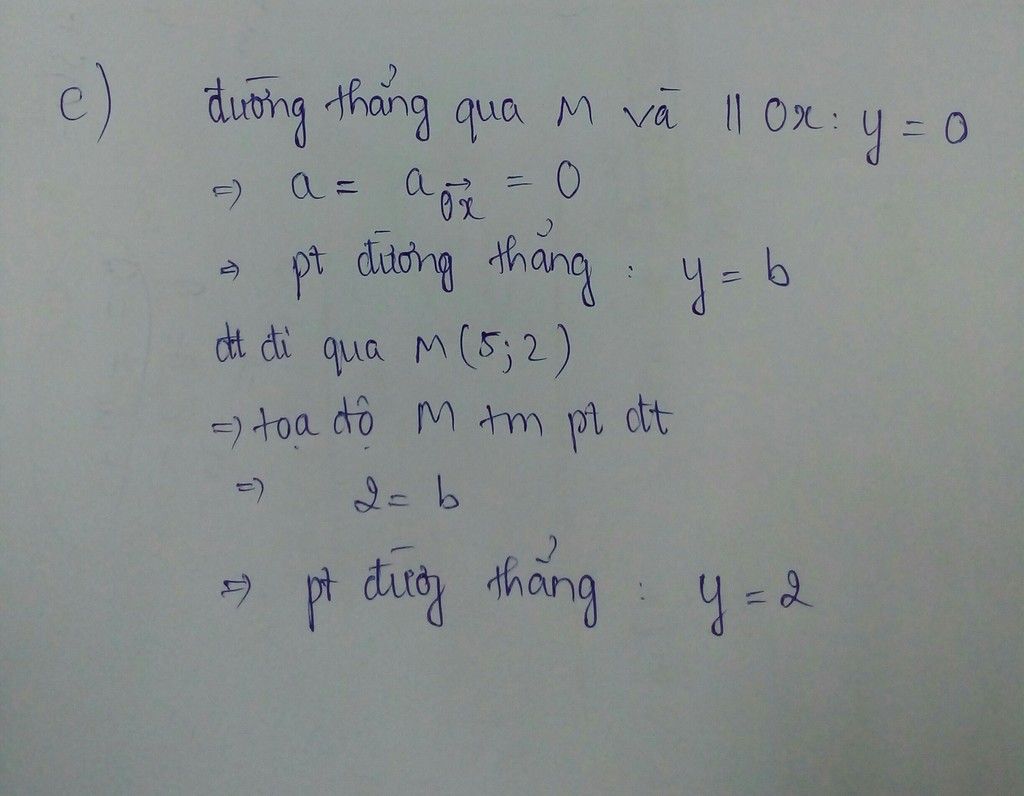 c) đường thẳng qua M và || Ox: y = 0
=> a = a Ox = 0
=> pt đường thẳng : y = b
đt đi qua M(5;2)
=> tọa độ M tm pt đt
=> 2 = b
=> pt đường thẳng : y = 2